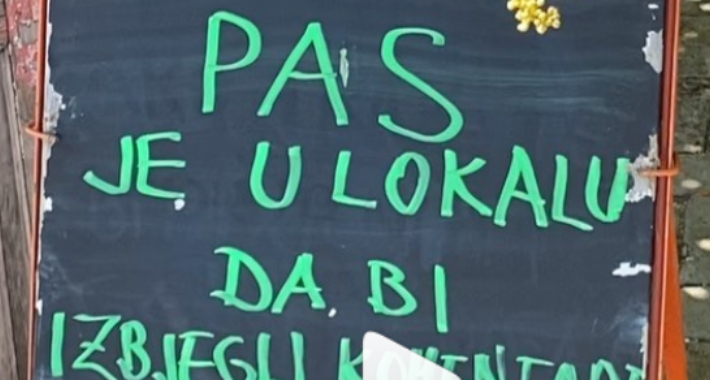 PAS
JE U LOKALU
DA BI
IZBJEGLI